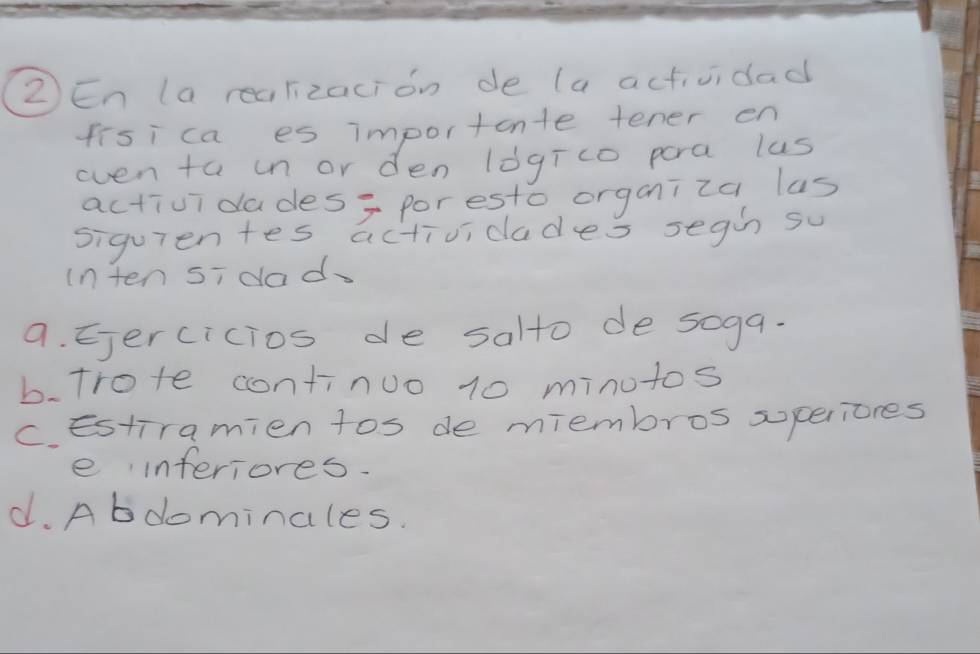 2 En la realización de la actividad
física es importante tener en
cuenta un orden lógico para las
actividades; por esto organiza las
siguientes actividades según su
intensidad.
a. Ejercicios de salto de soga.
b. Trote continuo 10 minutos
c. Estiramientos de miembros superiores
e inferiores.
d. Abdominales.